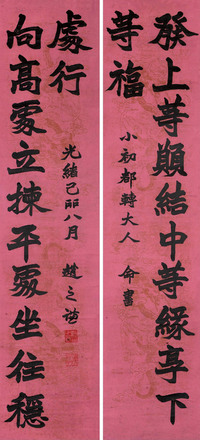 發上等願結中等緣享下
等福
小初都轉大人 命書
向高處立揀平處坐往穩
處行
光緒己卯八月
趙之謙